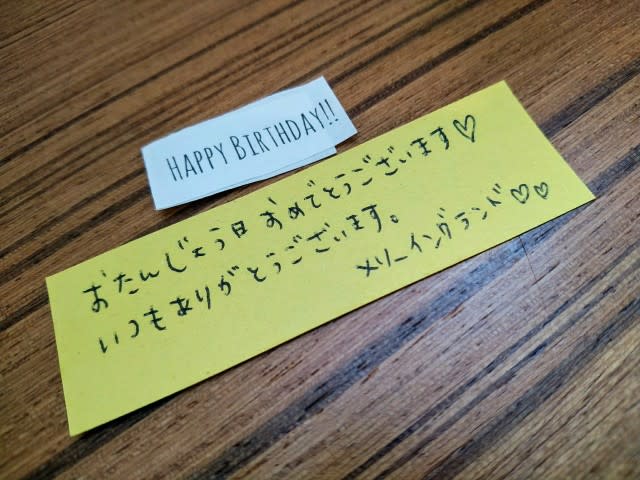 HAPPY BIRTHDAY!!
おたんじょう日おめでとうございます♡
いつもありがとうございます。
メリーイングランド♡♡